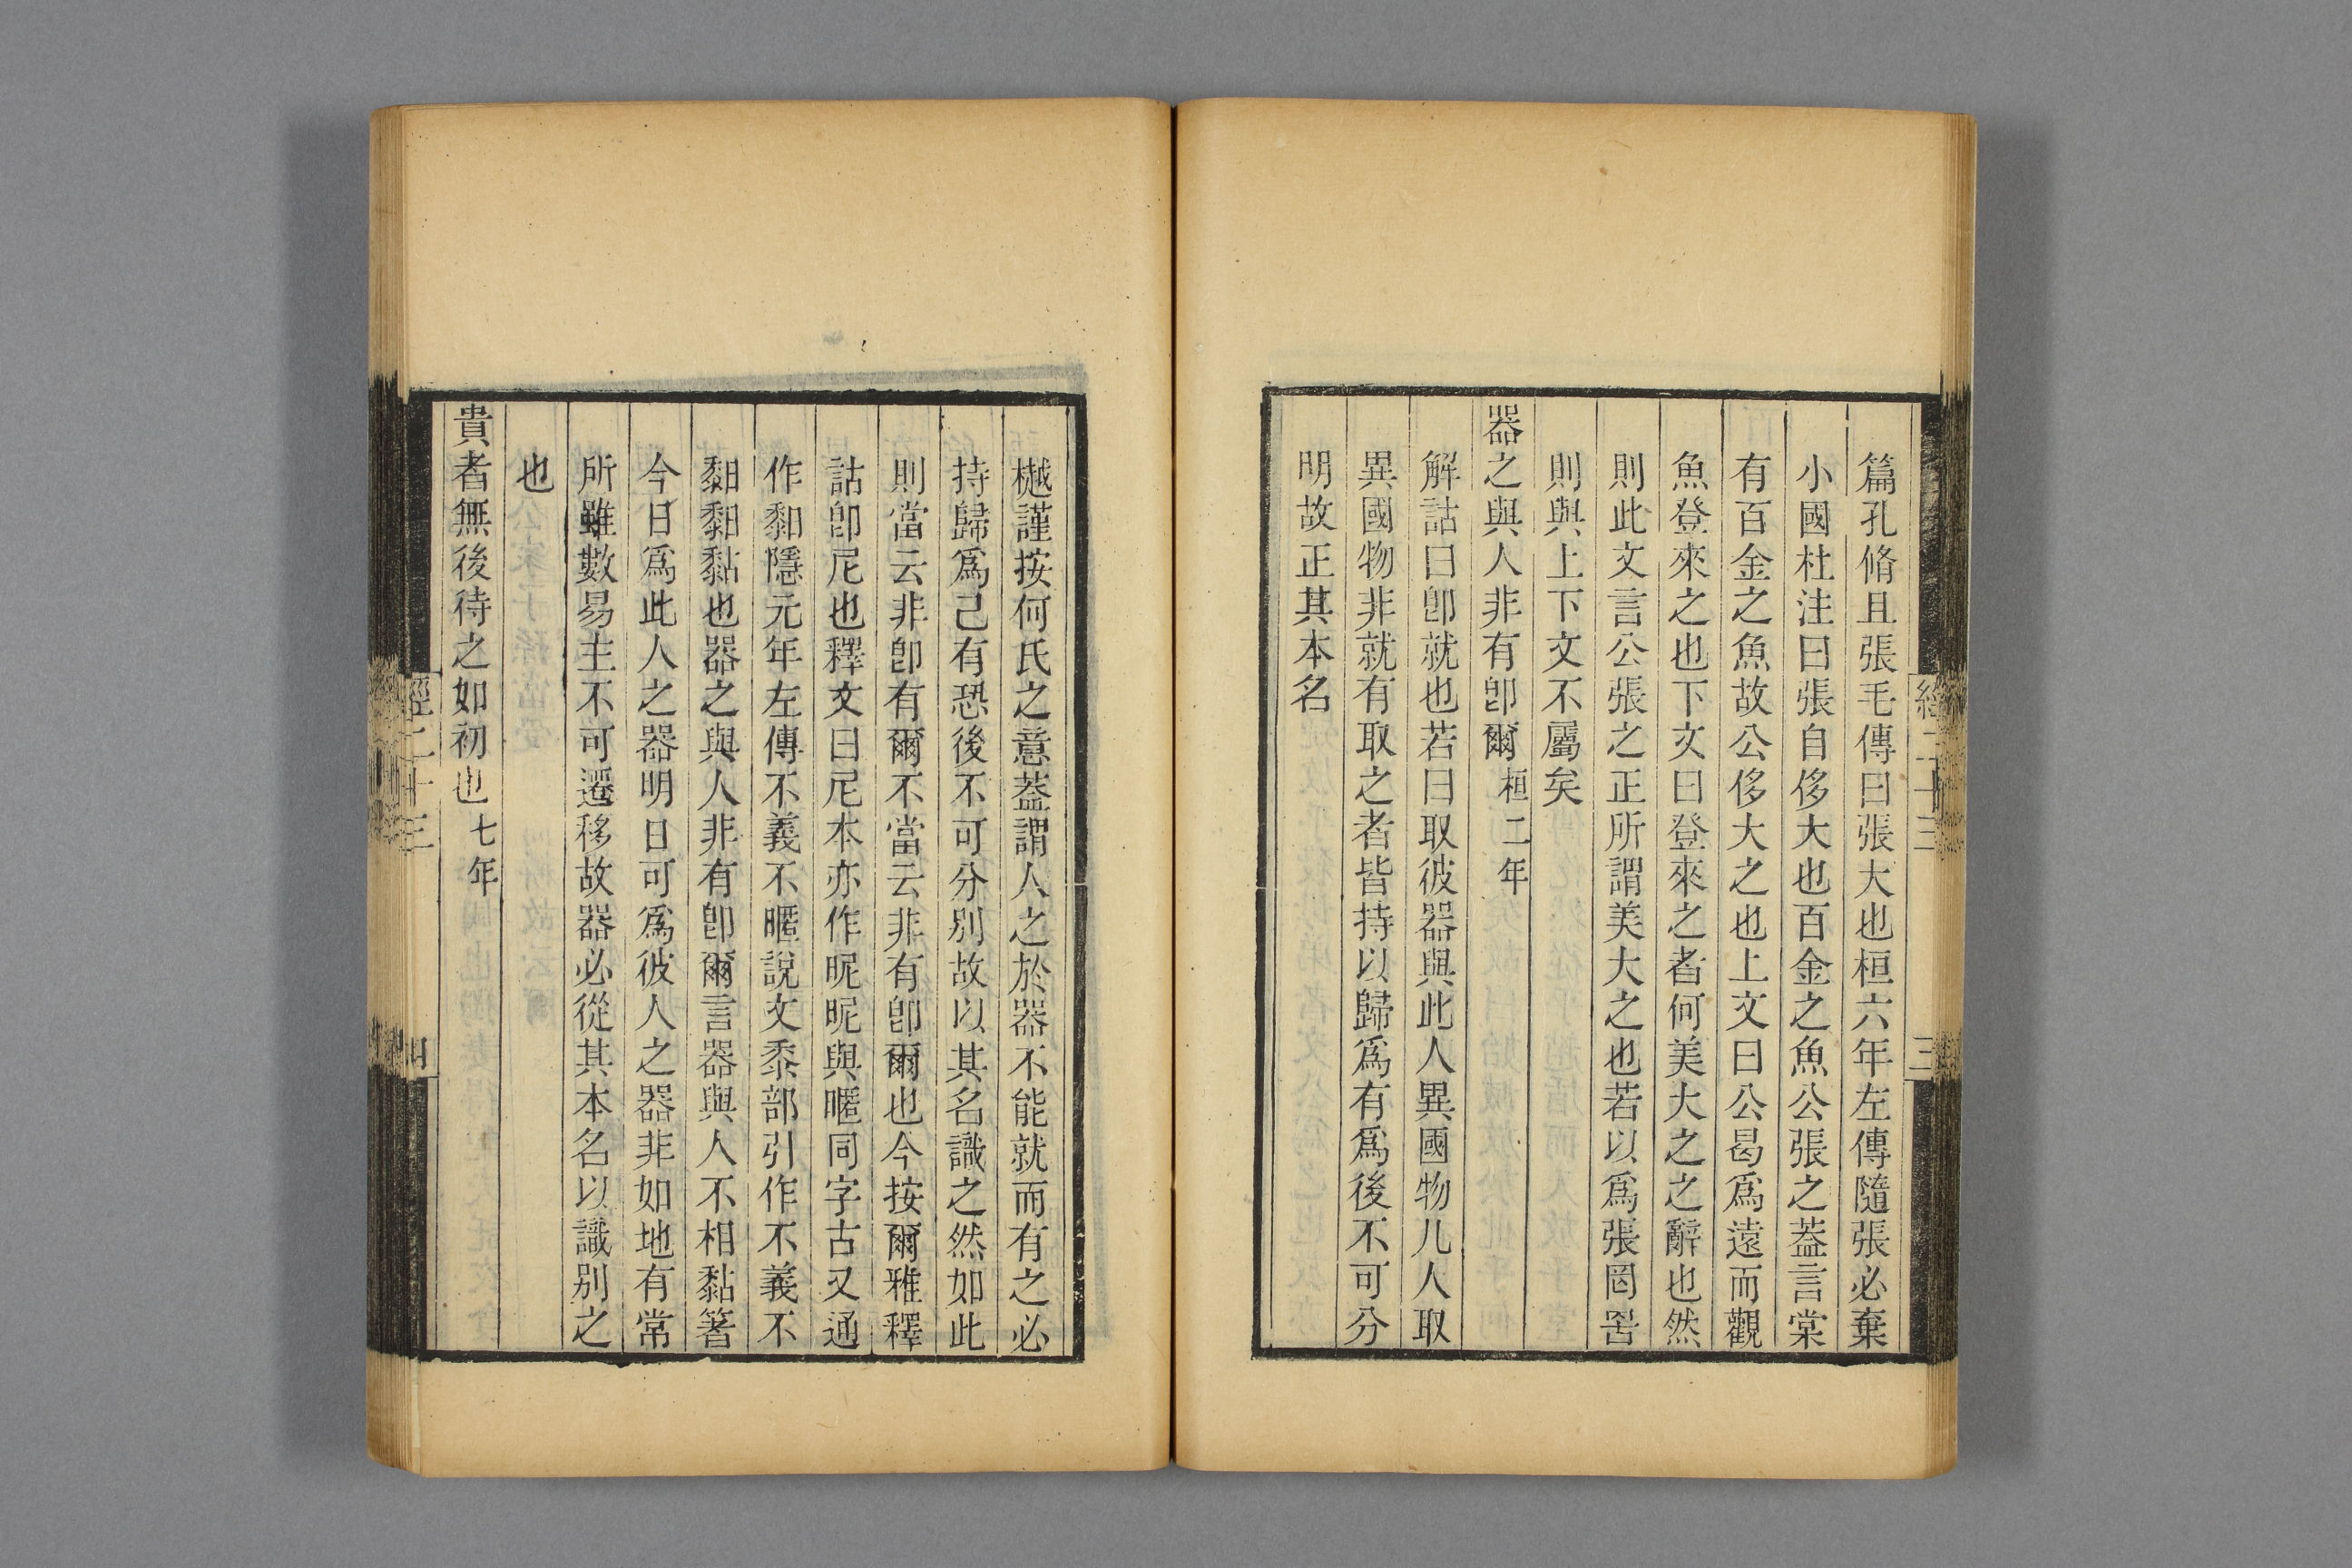 篇孔脩且張毛傳曰張大也桓六年左傳隨張必棄
小國杜注曰張自侈大也百金之魚公張之蓋言棠
有百金之魚故公侈大之也上文曰公曷爲遠而觀
魚登來之也下文曰登來之者何美大之之辭也然
則此文言公張之正所謂美大之也若以爲張罔罟
則與上下文不屬矣
器之與人非有卽爾桓二年
解詁曰卽就也若曰取彼器與此人異國物凡人取
異國物非就有取之者皆持以歸爲有爲後不可分
明故正其本名
經二十三
三
樾謹按何氏之意蓋謂人之於器不能就而有之必
持歸爲己有恐後不可分別故以其名識之然如此
則當云非卽有爾不當云非有卽爾也今按爾雅釋
詁卽尼也釋文曰尼本亦作昵昵與暱同字古又通
作䵒隱元年左傳不義不暱說文黍部引作不義不
䵒䵒黏也器之與人非有卽爾言器與人不相黏箸
今日爲此人之器明日可爲彼人之器非如地有常
所雖數易主不可遷移故器必從其本名以識别之
也
貴者無後待之如初也七年
經二十三
四